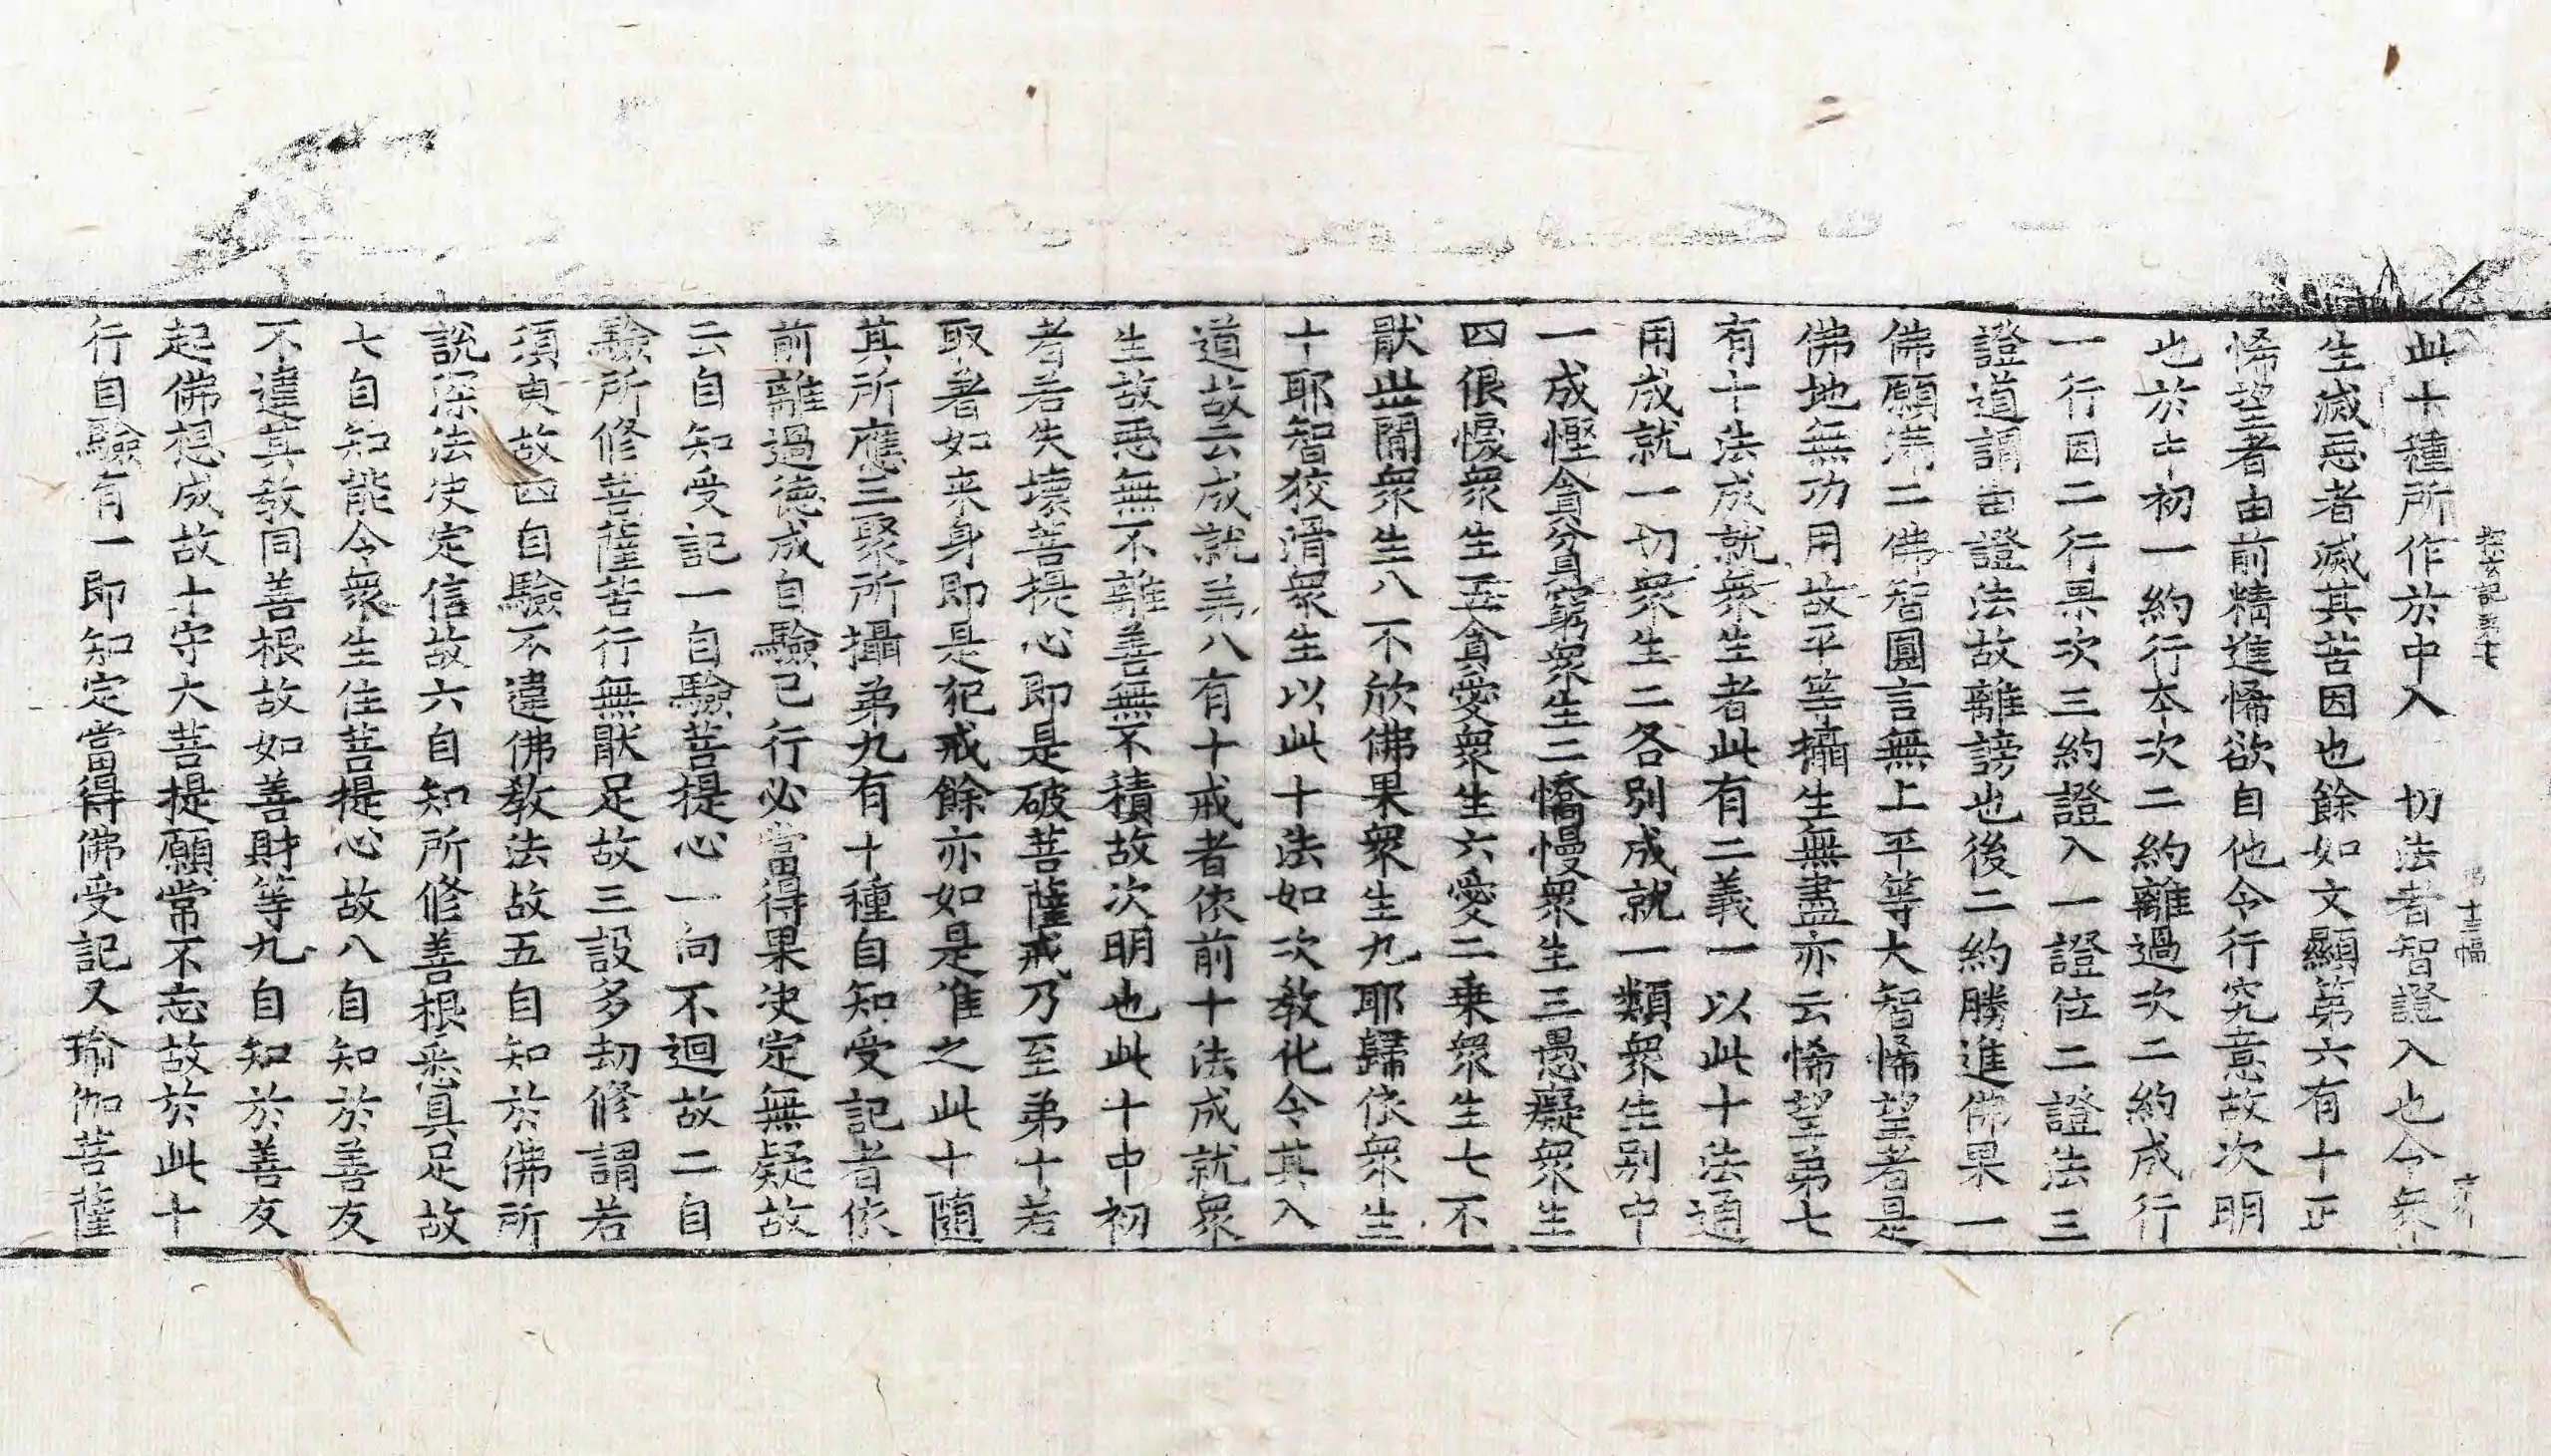 探玄記第七　十三幅
此十種所作於中入　切法者智證入也令衆
生滅惡者滅其苦因也餘如文顯第六有十正
悕望者由前精進悕欲自他令行究意故次明
也於中初一約行本次二約離過次二約成行
一行因二行果次三約證入一證位二證法三
證道謂由證法故離謗也後二約勝進佛果一
佛願滿二佛智圓言無上平等大智悕望者是
佛地無功用故平等攝生無盡亦云悕望第七
有十法成就衆生者此有二義一以此十法通
用成就一切衆生二各別成就一類衆生別中
一成慳貪貧窮衆生二憍慢衆生三愚癡衆生
四佷懷衆生五貪愛衆生六愛二乗衆生七不
猒丗閙衆生八不欣佛果衆生九耶歸依衆生
十耶智狡滑衆生以此十法如次教化令其入
道故云成就弟八有十戒者依前十法成就衆
生故惡無不離善無不積故次明也此十中初
者若失壞菩提心即是破菩薩戒乃至弟十若
取著如来身即是犯戒餘亦如是准之此十隨
其所應三聚所攝弟九有十種自知受記者依
前離過德成自驗己行必當得果决定無疑故
云自知受記一自驗菩提心一向不迴故二自
驗所修菩薩苦行無猒足故三設多劫修謂若
須臾故四自驗不違佛教法故五自知於佛所
說深法决定信故六自知所修善根悉具足故
七自知能令衆生住菩提心故八自知於善友
不違其教同善根故如善財等九自知於善友
起佛想成故十守大菩提願常不忘故於此十
行自驗有一即知定當得佛受記又瑜伽菩薩